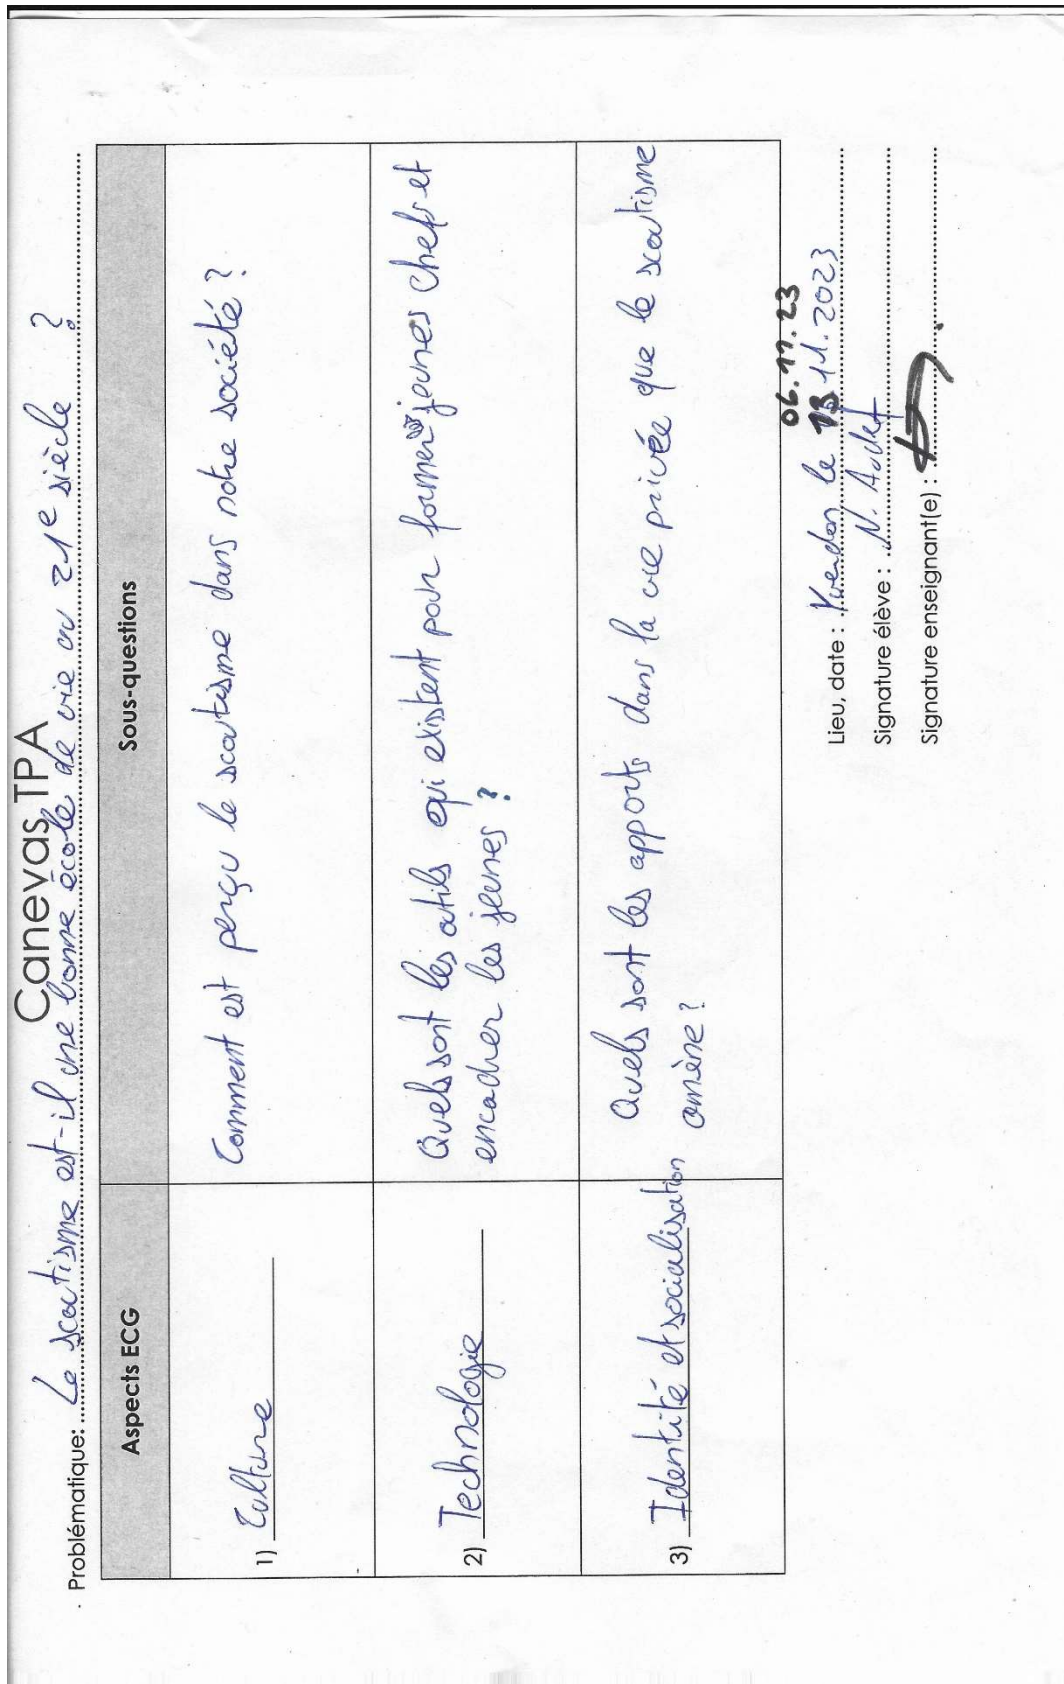 Canevas TPA
Problématique: Le scoutisme est-il une bonne école de vie au 21e siècle ?
Aspects ECG
Sous-questions
1) Culture
Comment est perçu le scoutisme dans notre société ?
2) Technologie
Quels sont les outils qui existent pour former jeunes chefs et
encadrer les jeunes ?
3) Identité et socialisation
Quels sont les apports dans la vie privée que le scoutisme
amène ?
06.11.23
Lieu, date : Yverdon le 13 11.2023
Signature élève : N. Audet
Signature enseignant(e) :